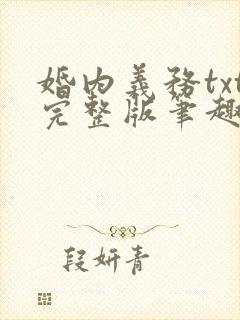 婚内義務txt
完整版筆趣
段妍青